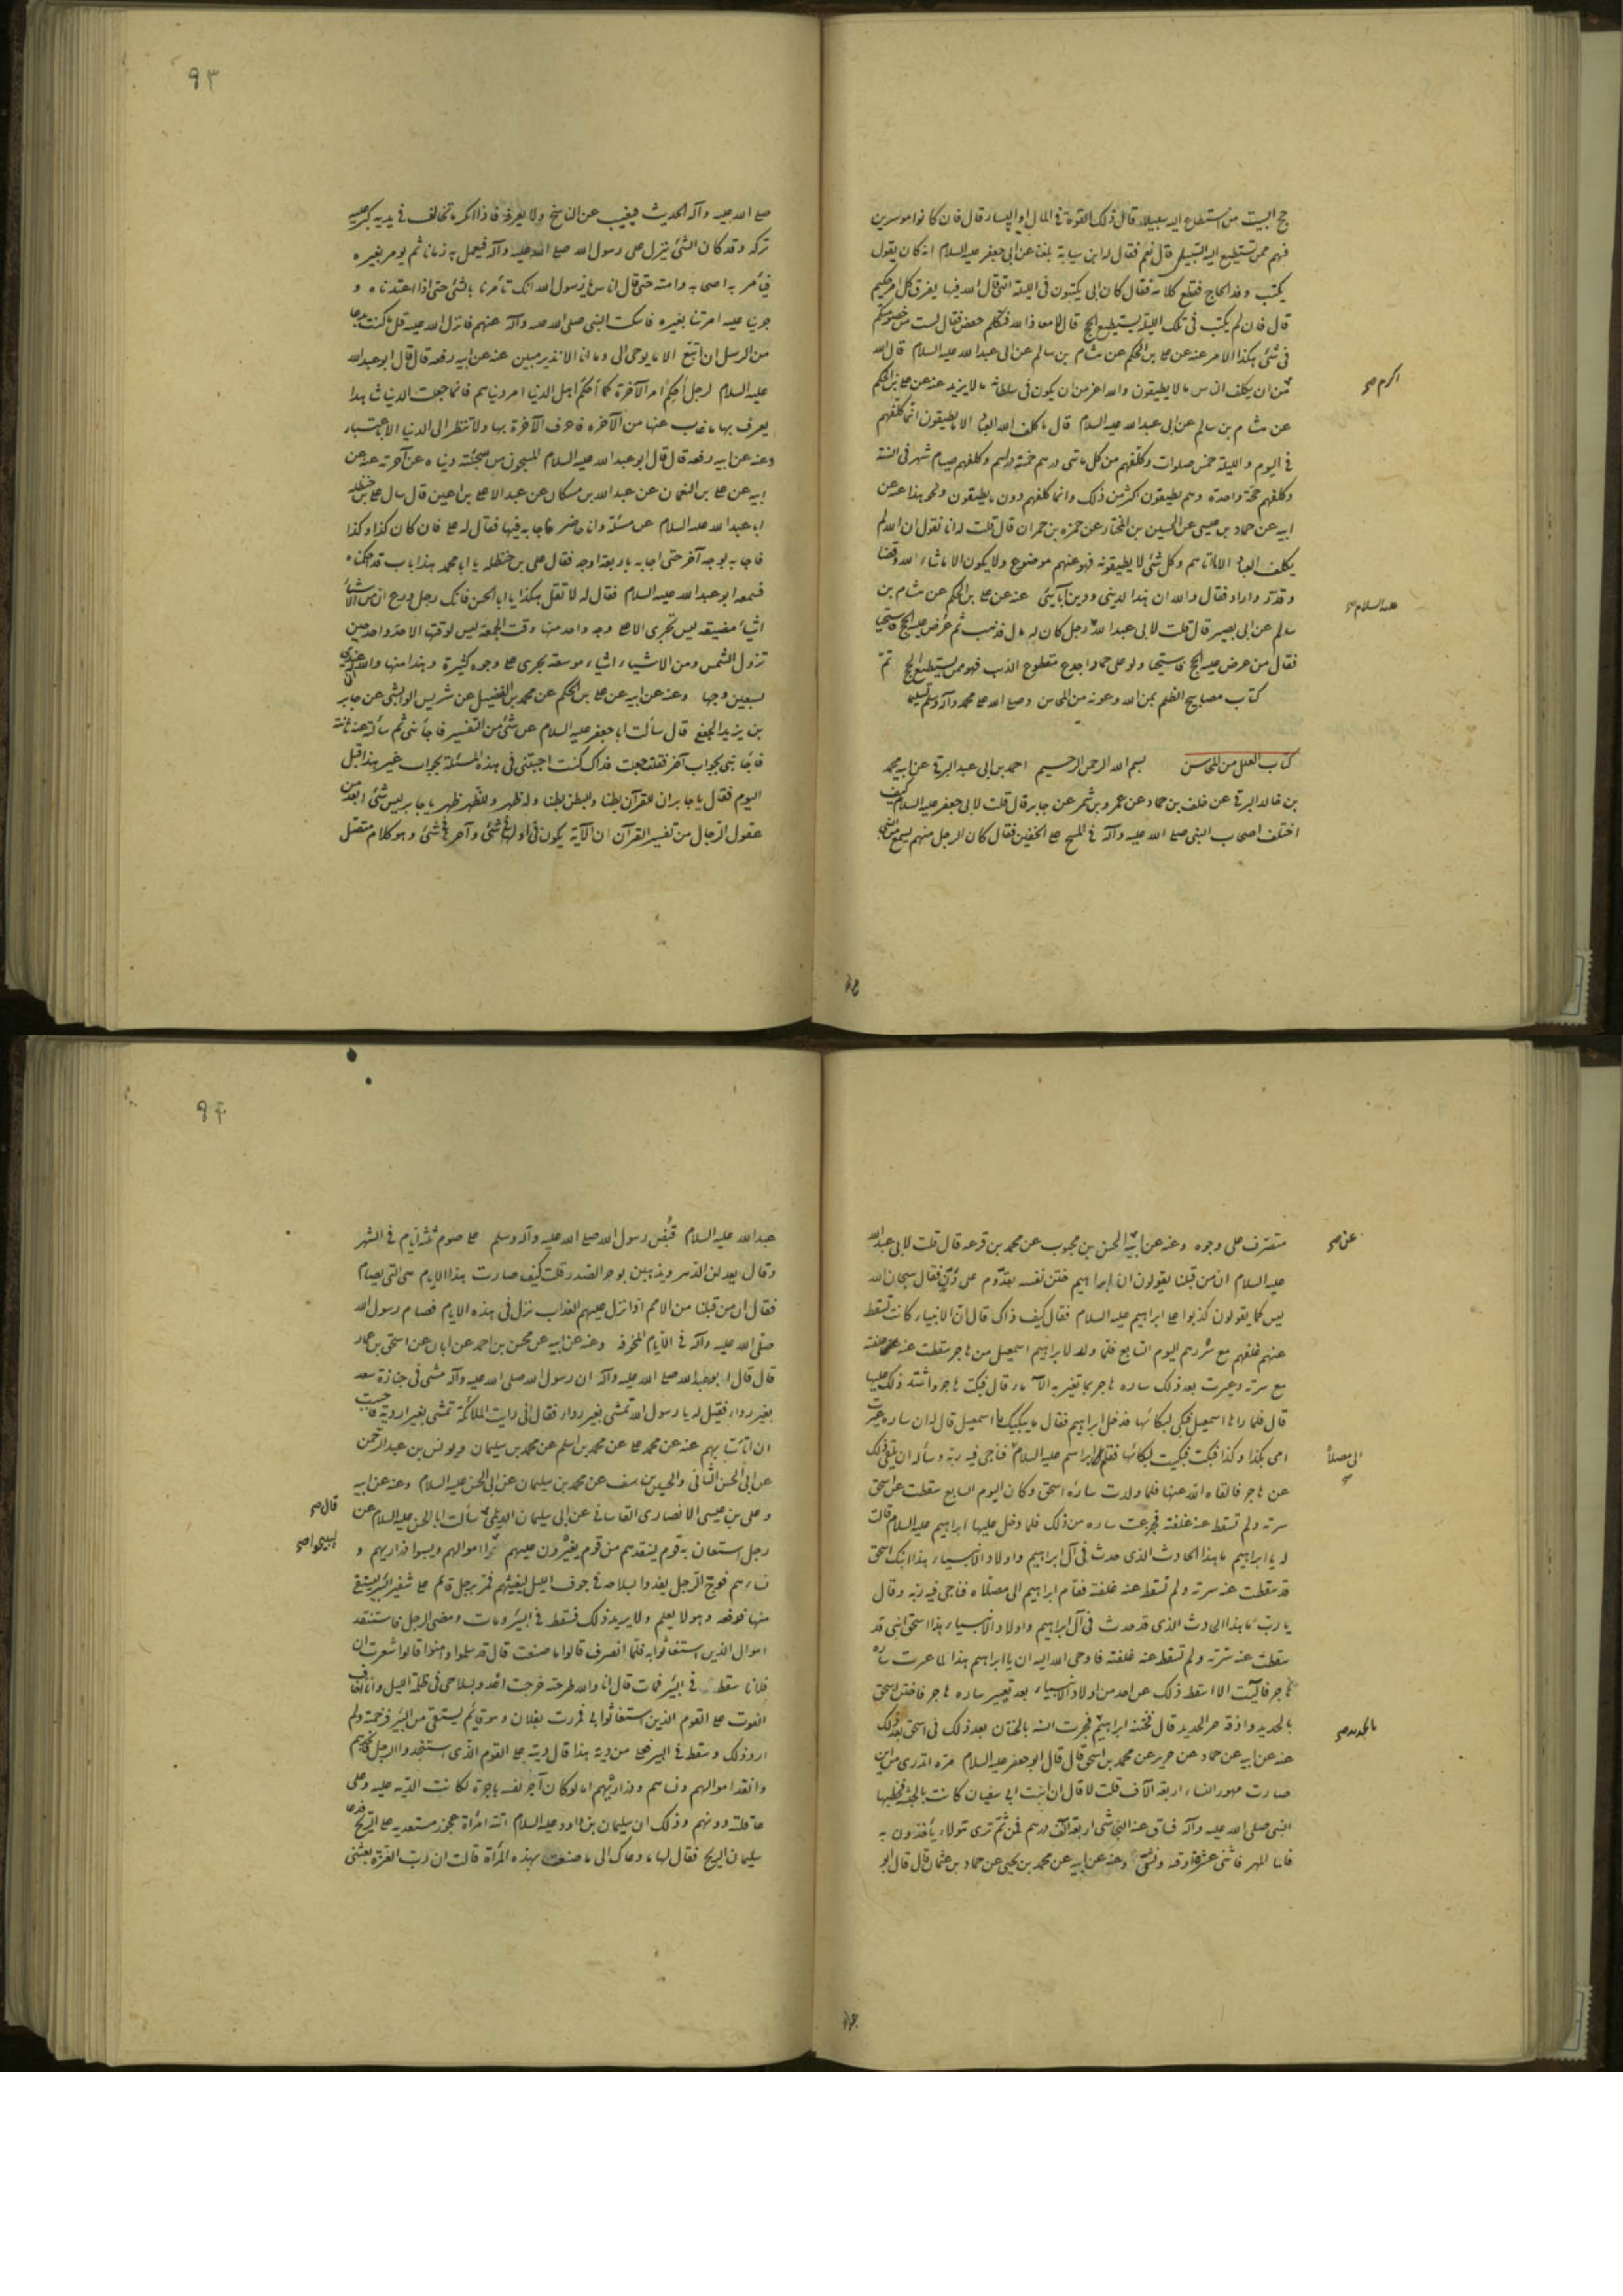 حج البيت من استطاع اليه سبيلا قال ذلك القوة في المال او اليسار قال فان كانوا موسرين
فهم ممن يستطيع اليه السبيل قال نعم فقال له ابن سيابة بلغنا عن ابي جعفر عليه السلام انه كان يقول
يكتب وفد الحاج فقطع كلامه فقال كان ابي يكتبون في الليلة التي قال الله فيها يفرق كل امر حكيم
قال فان لم يكتب في تلك الليلة يستطيع الحج قال لا معاذ الله فتكلم حفص فقال لست من خصومتكم
في شئ هكذا الامر عنه عن علي بن الحكم عن هشام بن سالم عن ابي عبد الله عليه السلام قال الله
اكرم صح
من ان يكلف الناس ما لا يطيقون والله اعز من ان يكون في سلطانه ما لا يريد عنه عن علي بن الحكم
عن هشام بن سالم عن ابي عبد الله عليه السلام قال ما كلف الله العباد الا ما يطيقون انما كلفهم
في اليوم والليلة خمس صلوات وكلفهم من كل مائتي درهم خمسة دراهم وكلفهم صيام شهر في السنة
وكلفهم حجة واحدة وهم يطيقون اكثر من ذلك وانما كلفهم دون ما يطيقون ونحو هذا عنه عن
ابيه عن حماد بن عيسى عن الحسين بن المختار عن حمزه بن حمران قال قلت له انا نقول ان الله لم
يكلف العباد الا ما آتاهم وكل شئ لا يطيقونه فهو عنهم موضوع ولا يكون الا ما شاء الله وقضا
وقدر واراد فقال والله ان هذا لديني ودين آبائي عنه عن علي بن الحكم عن هشام بن
عليه السلام صح
سالم عن ابي بصير قال قلت لابي عبد الله رجل كان له مال فذهب ثم عرض عليه الحج فاستحيى
فقال من عرض عليه الحج فاستحيا ولو على حمار اجدع مقطوع الذنب فهو ممن يستطيع الحج تم
كتاب مصابيح الظلم بمن الله وعونه من المحاسن وصلى الله على محمد وآله وسلم تسليما
كتاب العلل من المحاسن بسم الله الرحمن الرحيم احمد بن ابي عبد البرقي عن ابيه محمد
بن خالد البرقي عن خلف بن حماد عن عمرو بن شمر عن جابر قال قلت لابي جعفر عليه السلام كيف
اختلف اصحاب النبي صلى الله عليه وآله في المسح على الخفين فقال كان الرجل منهم يسمع من النبي
٩٣
صلى الله عليه وآله الحديث فيغيب عن الناسخ ولا يعرفه فاذا انكر ما تخالف في يديه كبر عليه
تركه وقد كان الشئ ينزل على رسول الله صلى الله عليه وآله فيعمل به زمانا ثم يومر بغيره
فيأمر به اصحابه وامته حتى قال اناس يا رسول الله انك تأمرنا بالشئ حتى اذا اعتدناه و
جرينا عليه امرتنا بغيره فاسكت النبي صلى الله عليه وآله عنهم فانزل الله عليه قل ما كنت بدعا
من الرسل ان اتبع الا ما يوحى الى وما انا الا نذير مبين عنه عن ابيه رفعه قال قال ابو عبد الله
عليه السلام لرجل أحكم امر الآخرة كما أحكم اهل الدنيا امر دنياهم فانما جعلت الدنيا شاهدا
يعرف بها ما غاب عنها من الآخره فاعرف الآخرة بها ولا تنظر الى الدنيا الا باعتبار
وعنه عن ابيه رفعه قال قال ابو عبد الله عليه السلام المسجون من سجنته دنياه عن آخرته عنه عن
ابيه عن علي بن النعمان عن عبد الله بن مسكان عن عبد الاعلى بن اعين قال سال علي بن حنظله
ابا عبد الله عليه السلام عن مسئلة وانا حاضر فاجابه فيها فقال له علي فان كان كذا وكذا
فاجابه بوجه آخر حتى اجابه باربعة اوجه فقال علي بن حنظله يا ابا محمد هذا باب قد احكمناه
فسمعه ابو عبد الله عليه السلام فقال له لا تقل هكذا يا ابا الحسن فانك رجل ورع ان من الاشياء
اشياء مضيقه ليس تجري الا على وجه واحد منها وقت الجمعة ليس لوقتها الا حد واحد حين
تزول الشمس ومن الاشياء اشياء موسعة يجرى على وجوه كثيرة وهذا منها والله ان له عندي
لسبعين وجها وعنه عن ابيه عن علي بن الحكم عن محمد بن الفضيل عن شريس الوابشي عن جابر
بن يزيد الجعفي قال سألت ابا جعفر عليه السلام عن شئ من التفسير فاجابني ثم سألته عنه ثانية
فاجابني بجواب آخر فقلت جعلت فداك كنت اجبتني في هذه المسئلة بجواب غير هذا قبل
اليوم فقال يا جابر ان للقرآن بطنا وللبطن بطنا وله ظهر وللظهر ظهر يا جابر ليس شئ ابعد من
عقول الرجال من تفسير القرآن ان الآية يكون اولها في شئ وآخرها في شئ وهو كلام متصل
عن صح
متصرف على وجوه وعنه عن ابيه الحسن بن محبوب عن محمد بن قزعه قال قلت لابي عبد الله
عليه السلام ان من قبلنا يقولون ان ابراهيم ختن نفسه بقدوم على دن فقال سبحان الله
ليس كما يقولون كذبوا على ابراهيم عليه السلام فقال كيف ذاك قال ان الانبياء كانت تسقط
عنهم غلفهم مع سررهم اليوم السابع فلما ولد لابراهيم اسمعيل من هاجر سقطت عنه غلفته
مع سرته وعيرت بعد ذلك ساره هاجر بما تعير به الاماء قال فبكت هاجر واشتد ذلك عليها
قال فلما راها اسمعيل تبكي بكى لبكائها فدخل ابراهيم فقال ما يبكيك يا اسمعيل قال له ان ساره عيرت
امي بكذا وكذا فبكت فبكيت لبكائها فقام ابراهيم عليه السلام فناجى فيه ربه وسأله ان يلقى ذلك
الى مصلاه
عن هاجر فالقاه الله عنها فلما ولدت ساره اسحق وكان اليوم السابع سقطت عن اسحق
سرته ولم تسقط عنه غلفته فجزعت ساره من ذلك فلما دخل عليها ابراهيم عليه السلام قالت
له يا ابراهيم ما هذا الحادث الذي حدث في آل ابراهيم واولاد الانبياء هذا ابنك اسحق
قد سقطت عنه سرته ولم تسقط عنه غلفته فقام ابراهيم الى مصلاه فناجى فيه ربه وقال
يا رب ما هذا الحادث الذي قد حدث في آل ابراهيم واولاد الانبياء هذا اسحق ابني قد
سقطت عنه سرته ولم تسقط عنه غلفته فاوحى الله اليه ان يا ابراهيم هذا لما عيرت ساره
هاجر فآليت الا اسقط ذلك عن احد من اولاد الانبياء بعد تعيير ساره هاجر فاختن اسحق
بالحديد صح
بالحديد واذقه حر الحديد قال فختنه ابراهيم فجرت السنة بالختان بعد ذلك في اسحق بعد ذلك
عنه عن ابيه عن حماد عن حريز عن محمد بن اسحق قال قال ابو جعفر عليه السلام مره اتدري من اين
صارت مهور النساء اربعة آلاف قلت لا قال ان بنت ابي سفيان كانت بالحبشة فخطبها
النبي صلى الله عليه وآله فساق عنه النجاشي اربعة آلاف درهم فمن ثم ترى هؤلاء يأخذون به
فاما المهر فاثنى عشرة اوقيه ونش وعنه عن ابيه عن محمد بن يحيى عن حماد بن عثمان قال قال ابو
٩٤
عبد الله عليه السلام قبض رسول الله صلى الله عليه وآله وسلم على صوم ثلثة ايام في الشهر
وقال يعدلن الدهر ويذهبن بوحر الصدر قلت كيف صارت هذا الايام هى التي يصام
فقال ان من قبلنا من الامم اذا نزل عليهم العذاب نزل في هذه الايام فصام رسول الله
صلى الله عليه وآله في الايام المخوفه وعنه عن ابيه عن محسن بن احمد عن ابان عن اسحق بن عمار
قال قال ابو عبد الله صلى الله عليه وآله ان رسول الله صلى الله عليه وآله مشى في جنازة سعد
بغير رداء فقيل له يا رسول الله تمشى بغير رداء فقال اني رايت الملائكة تمشى بغير اردية فاحببت
ان اتاسى بهم عنه عن محمد علي عن محمد بن اسلم عن محمد بن سليمان ويونس بن عبد الرحمن
عن ابي الحسن الثاني والحسين بن سيف عن محمد بن سليمان عن ابي الحسن عليه السلام وعنه عن ابيه
قال صح
وعلي بن عيسى الانصاري القاساني عن ابي سليمان الديلمي سألت ابا الحسن عليه السلام عن
ليبيحوا صح
رجل استعان به قوم لينقذهم من قوم يغيرون عليهم اموالهم ويسبوا ذراريهم و
نساءهم فخرج الرجل يعدوا بسلاحه في جوف الليل ليغيثهم فمر برجل قائم على شفير البئر يستقى
منها فدفعه وهو لا يعلم ولا يريد ذلك فسقط في البئر ومات ومضى الرجل فاستنقذ
اموال الذين استغاثوا به فلما انصرف قالوا ما صنعت قال قد سلموا وامنوا قالوا شعرت ان
فلانا سقط في البئر فمات قال انا والله طرحته خرجت اعدو بسلاحي في ظلمة الليل وانا اخاف
الفوت على القوم الذين استغاثوا بي فمررت بفلان وهو قائم يستقى من البئر فزحمته ولم
ارد ذلك وسقط في البير فعلى من دية هذا قال ديته على القوم الذي استنجدوا الرجل فانجدهم
وانقذ اموالهم ونساءهم وذراريهم اما لو كان آجر نفسه باجرة لكانت الدية عليه وعلى
عاقلته دونهم وذلك ان سليمان بن داود عليه السلام اتته امرأة عجوز مستعديه على الريح فدعا
سليمان الريح فقال لها ما دعاك الى ما صنعت بهذه المرأة قالت ان رب العزة بعثني